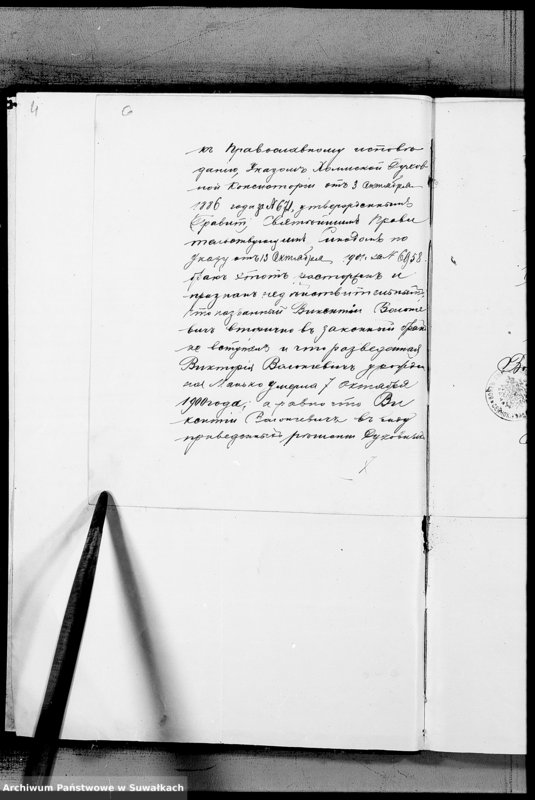 4
къ Православному исповѣ
данію, Указомъ Холмской Духов
ной Консисторіи отъ 3 Октября
1886 года за № 671, утвержденнымъ
Святѣйшимъ Прави
тельствующимъ Синодомъ по
Указу отъ 13 Октября
бракъ этотъ расторгнутъ и
признанъ недѣйствительнымъ,
что названный Викентій Волоке
вичъ вторично въ законный бракъ
не вступилъ и что разведенная
Викторія Волокевичъ урожден
ная умерла 7 Октября
1900 года; а равно что Ви
кентій Волокевичъ въ виду
приведенный рѣшеніи Духовный
Archiwum Państwowe w Suwałkach